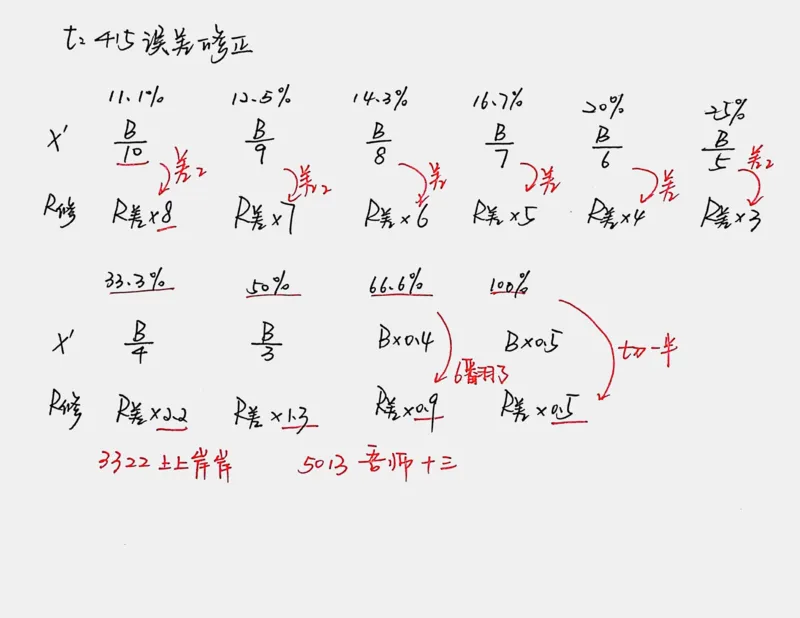 t: 415误差修正
11.1% 12.5% 14.3% 16.7% 20% 25%
X' B/10 B/9 B/8 B/7 B/6 B/5
差2 差2 差2 差2 差2 差2
R修 R差×8 R差×7 R差×6 R差×5 R差×4 R差×3
33.3% 50% 66.6% 100%
X' B/4 B/3 B×0.4 B×0.5
一半
6翻了
R修 R差×2.2 R差×1.3 R差×0.9 R差×0.5
3322 土上岸岸 5013 吾师十三